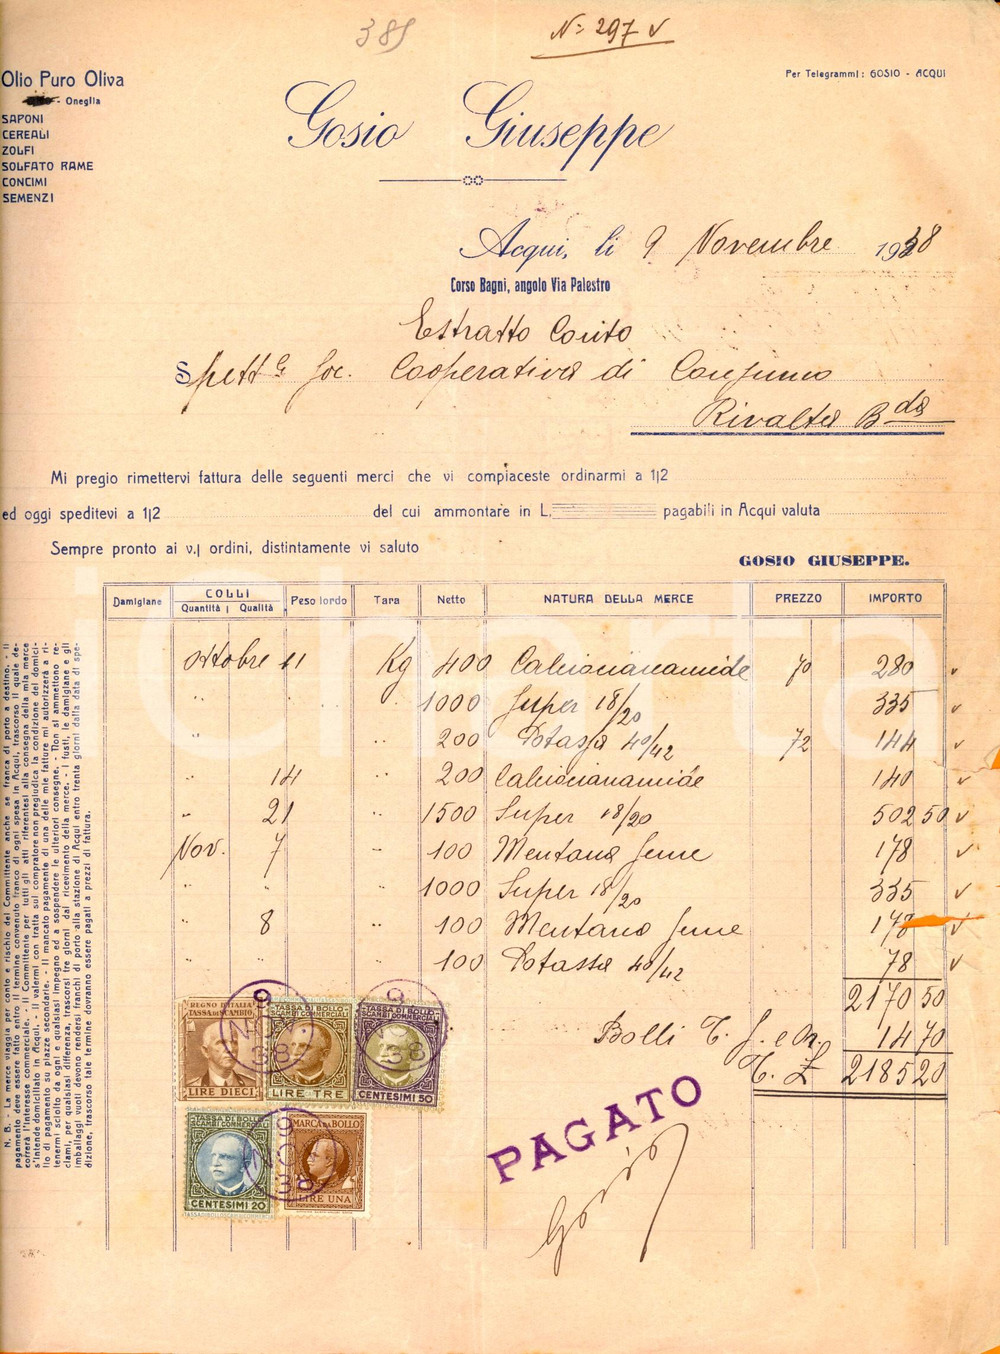 385
N= 297 v
Olio Puro Oliva
- Oneglia
SAPONI
CEREALI
ZOLFI
SOLFATO RAME
CONCIMI
SEMENZI
Per Telegrammi: GOSIO - ACQUI
Gosio Giuseppe
Acqui, li 9 Novembre 1938
Corso Bagni, angolo Via Palestro
Estratto Conto
Spett.e Soc. Cooperativa di Consumo
Rivalta B.da
Mi pregio rimettervi fattura delle seguenti merci che vi compiaceste ordinarmi a 1|2
ed oggi speditevi a 1|2 del cui ammontare in L. pagabili in Acqui valuta
Sempre pronto ai v.| ordini, distintamente vi saluto
GOSIO GIUSEPPE.
Damigiane COLLI Quantità Qualità Peso lordo Tara Netto NATURA DELLA MERCE PREZZO IMPORTO
Ottobre 11 Kg 400 Calciocianamide 70 280 v
" " 1000 Super 18/20 335 v
" " 200 Potassa 40/42 72 144 v
" 14 " 200 Calciocianamide 140 v
" 21 " 1500 Super 18/20 502 50 v
Nov. 7 " 100 Mentana Seme 178 v
" " 1000 Super 18/20 335 v
" 8 " 100 Mentana Seme 178 v
" " " 100 Potassa 40/42 78 v
2170 50
Bolli T. f. e N. 14 70
T. £ 2185 20
REGNO D'ITALIA
TASSA DI SCAMBIO
LIRE DIECI
TASSA DI BOLLO
SCAMBI COMMERCIALI
LIRE TRE
TASSA DI BOLLO
SCAMBI COMMERCIALI
CENTESIMI 50
9 NOV. 38
9 38
TASSA DI BOLLO
SCAMBI COMMERCIALI
CENTESIMI 20
MARCA DA BOLLO
LIRE UNA
9 NOV 38
PAGATO
Gosio
N. B. - La merce viaggia per conto e rischio del Committente anche se franca di porto a destino. - Il
pagamento deve essere fatto entro il termine convenuto franco di ogni spesa in Acqui, trascorso il quale de-
correrà l'interesse commerciale. - Il Committente per tutti gli atti riferentesi alla consegna della mia merce
s'intende domiciliato in Acqui. - Il valermi con tratta sul compratore non pregiudica la condizione del domici-
lio di pagamento su piazze secondarie. - Il mancato pagamento di una delle mie fatture mi autorizzerà a ri-
tenermi sciolto da ogni e qualsiasi impegno ed a sospendere le ulteriori consegne. - Non si ammettono re-
clami, per qualsiasi differenza, trascorsi tre giorni dal ricevimento della merce. - I fusti, le damigiane e gli
imballaggi vuoti devono rendersi franchi di porto alla stazione di Acqui entro trenta giorni dalla data di spe-
dizione, trascorso tale termine dovranno essere pagati a prezzi di fattura.
iCharta